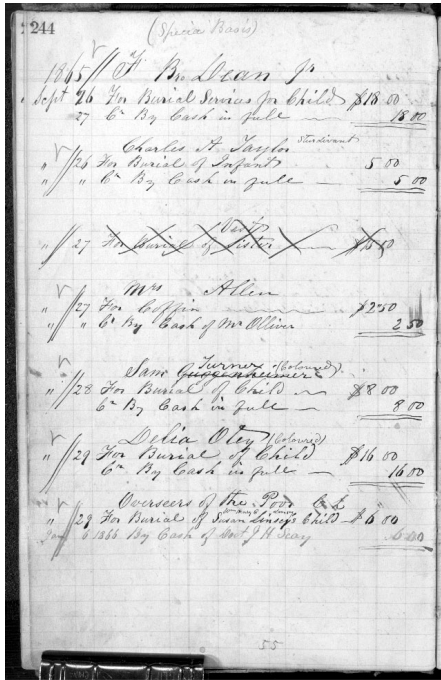 244
(Special Basis)
1865 Fr Bro Dean Jr
Sept 26 For Burial Services for Child $18 00
27 Cr By Cash in full 18 00
Charles A. Taylor Sturdivant
" 26 For Burial of Infant 5 00
" " Cr By Cash in full 5 00
" 27 For Burial of Sister
Mrs Allen
" 27 For Coffin $2 50
" " Cr By Cash of Mr Olliver 2 50
Sam Guggenheimer Turner (Coloured).
" 28 For Burial of Child $8 00
Cr By Cash in full 8 00
Delia Otey (Coloured)
" 29 For Burial of Child $16 00
Cr By Cash in full 16 00
Overseers of the Poor
" 29 For Burial of Susan Linsey's Child $6 00
6 1866 By Cash of J H Seay 6 00
55